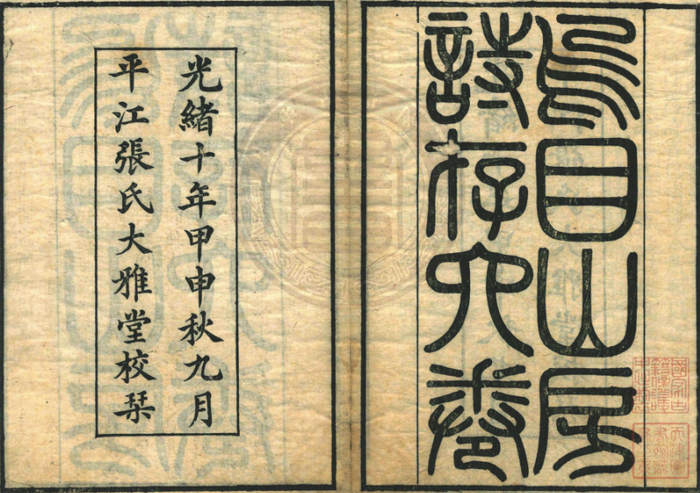 烏目山房
詩存六卷
光緒十年甲申秋九月
平江張氏大雅堂校栞